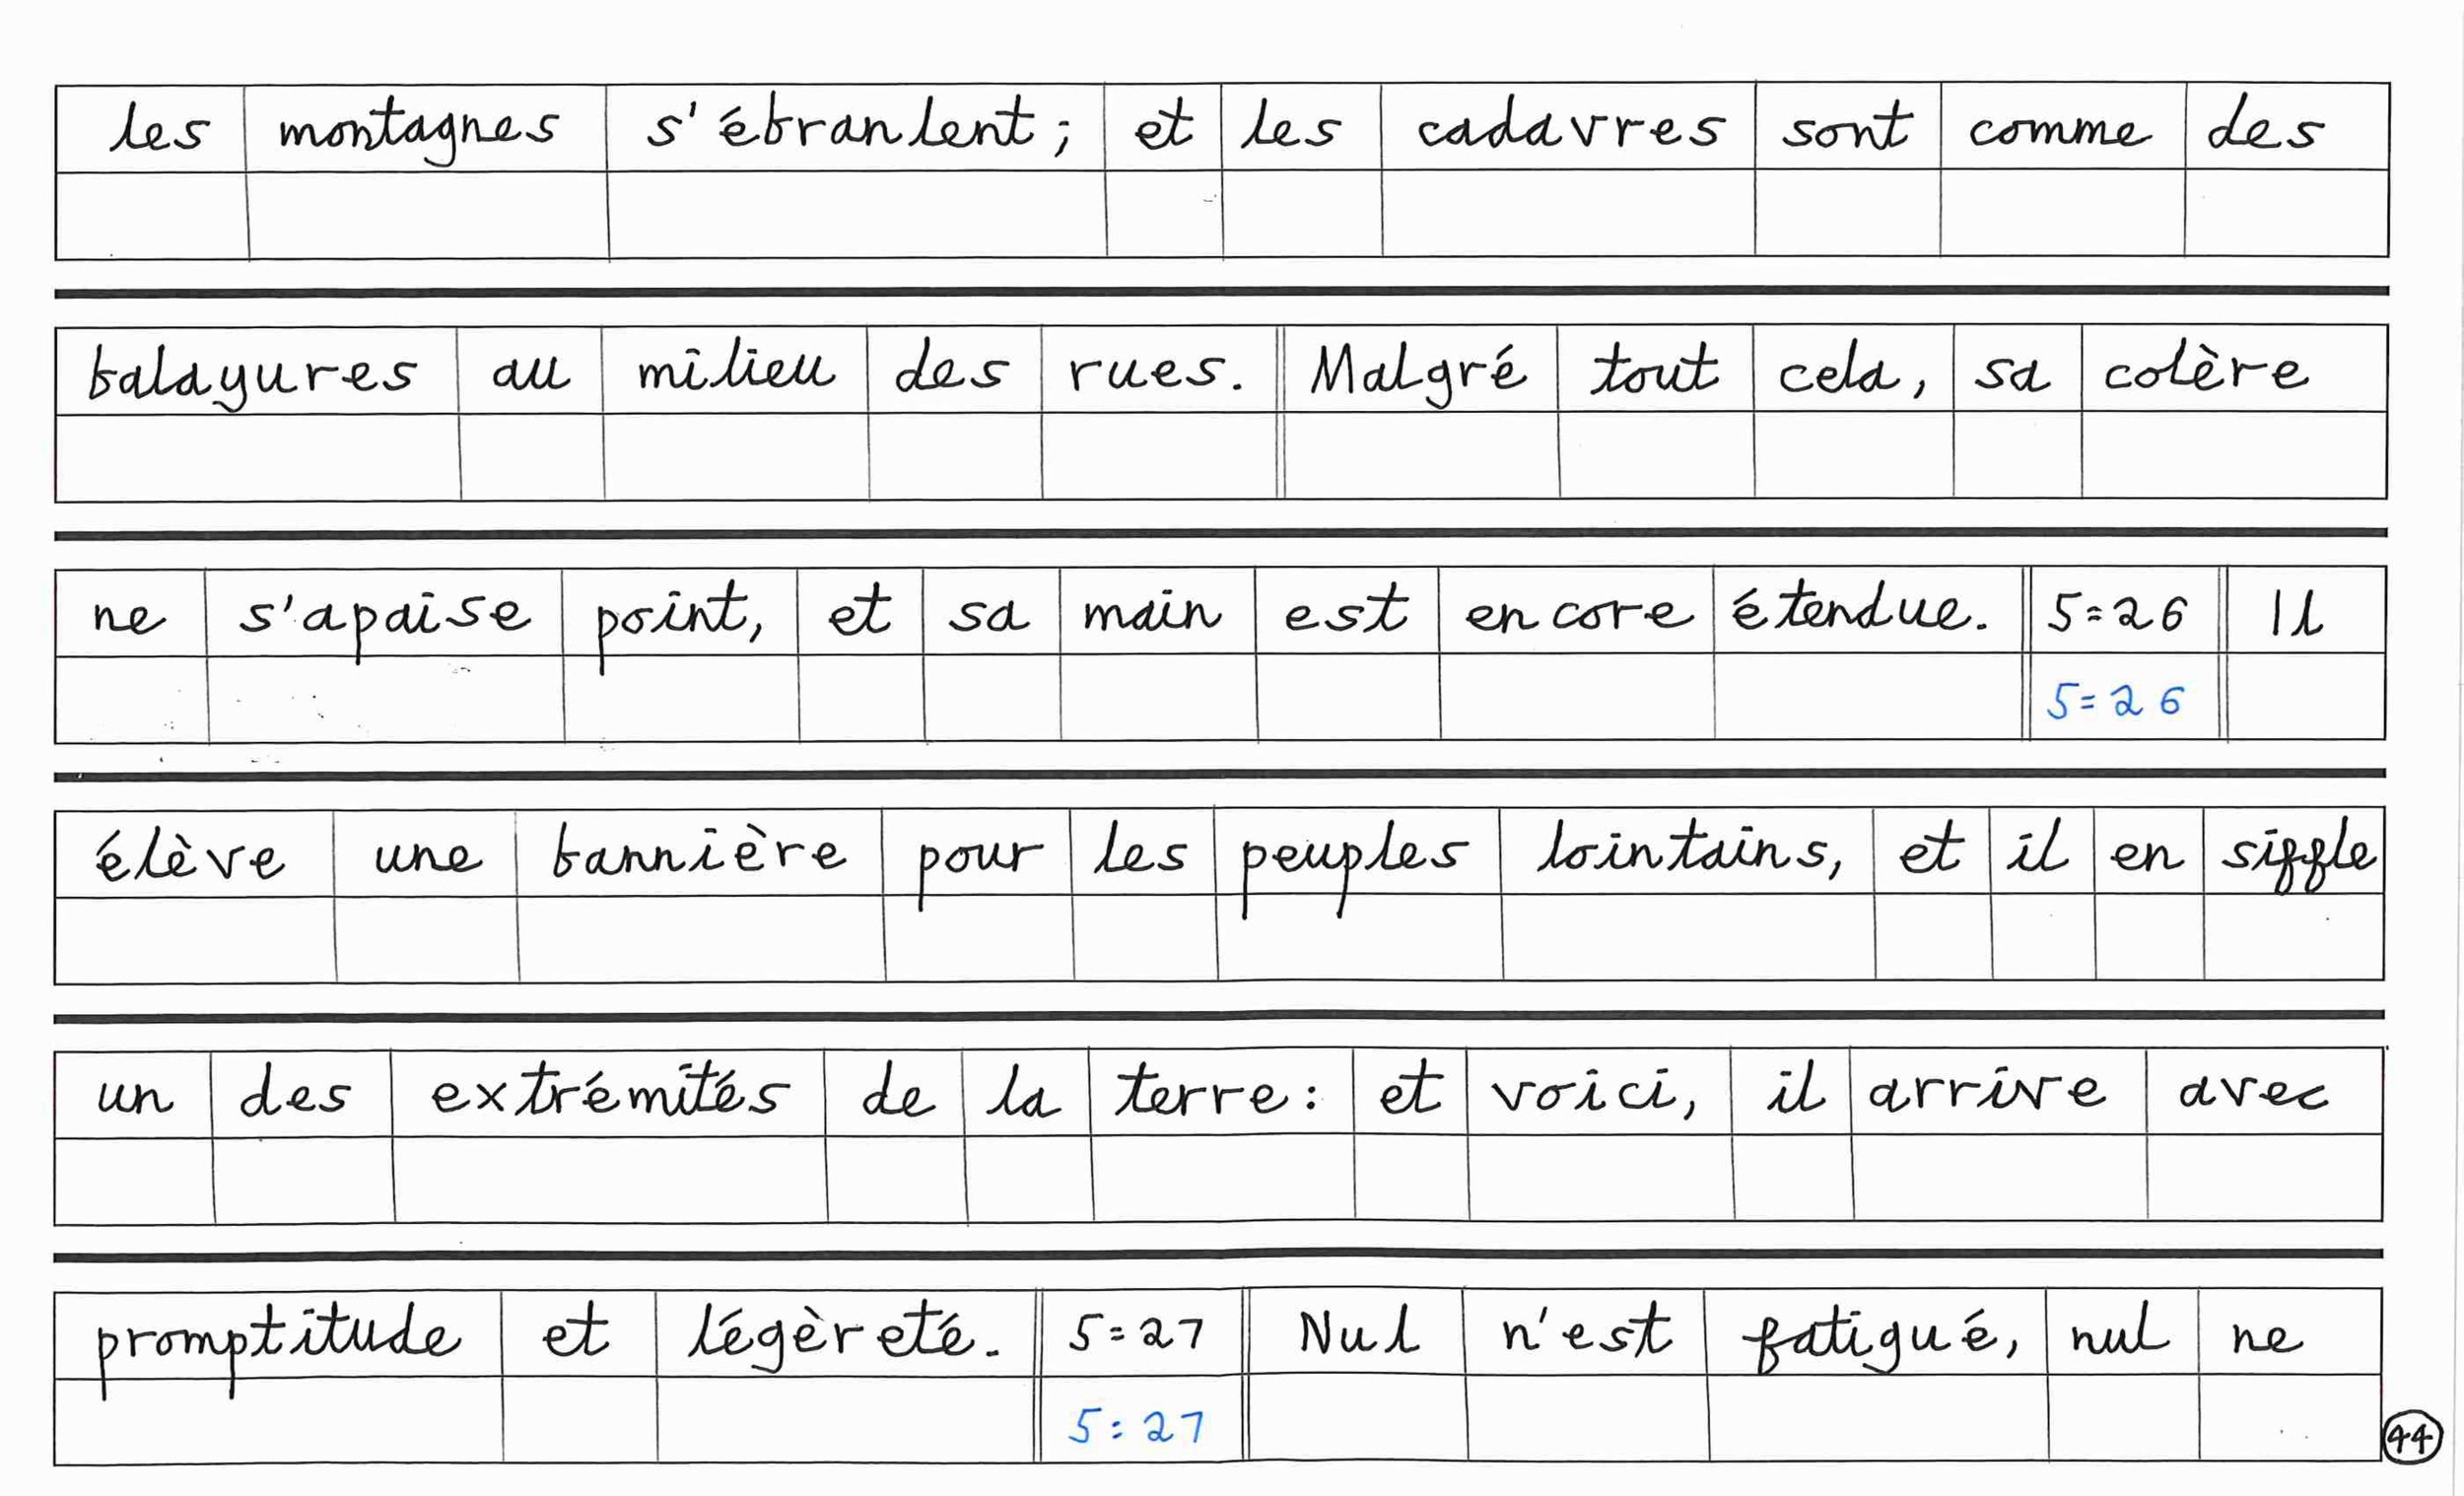 les montagnes s'ébranlent; et les cadavres sont comme des
balayures au milieu des rues. Malgré tout cela, sa colère
ne s'apaise point, et sa main est encore étendue. 5=26 Il
5=26
élève une bannière pour les peuples lointains, et il en siffle
un des extrémités de la terre: et voici, il arrive avec
promptitude et légèreté. 5=27 Nul n'est fatigué, nul ne
5:27
44